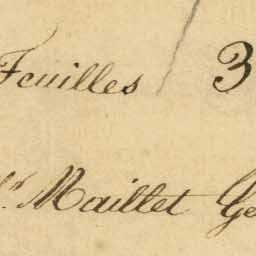 Feuilles 3
Maillet Ge